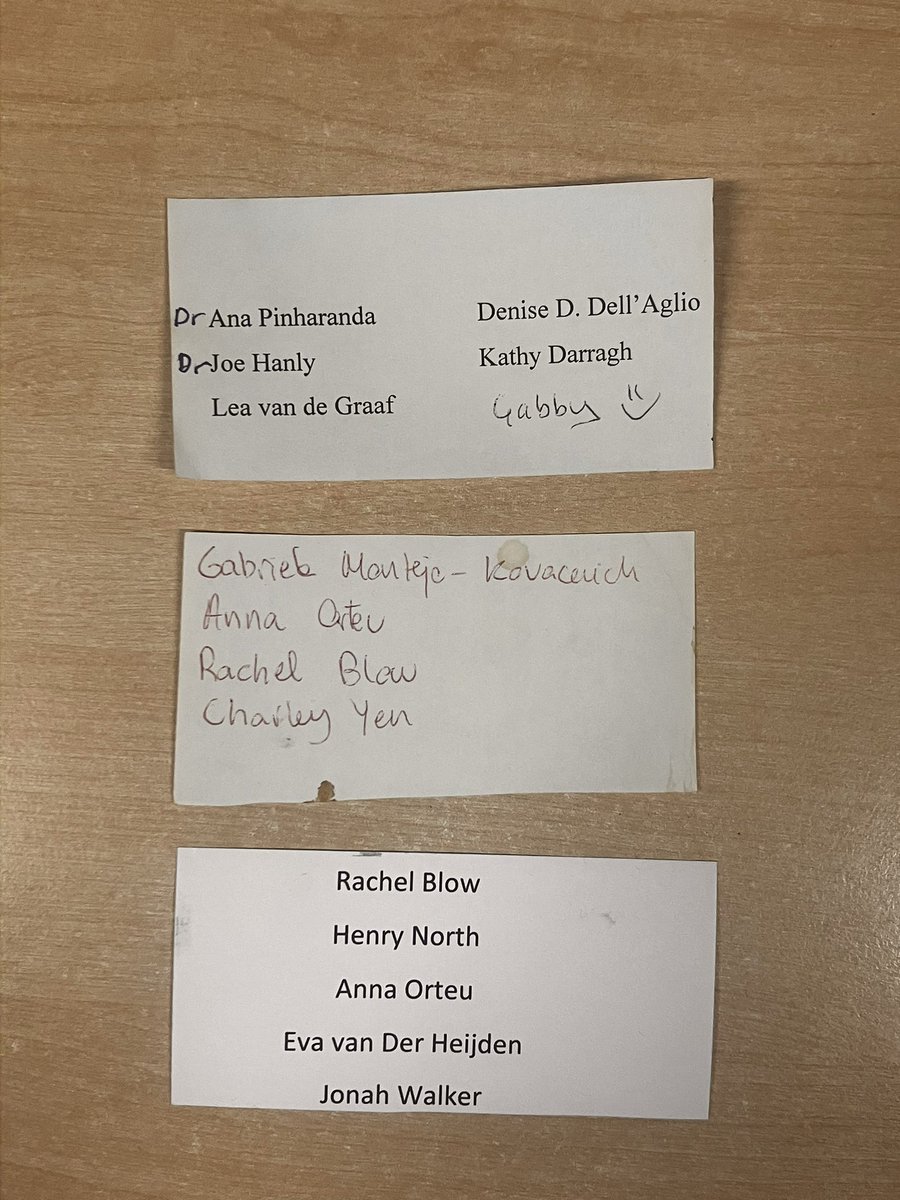 Dr Ana Pinharanda
Dr Joe Hanly
Lea van de Graaf
Denise D. Dell'Aglio
Kathy Darragh
Gabby
Gabriela Montejo-Kovacevich
Anna Orteu
Rachel Blow
Charley Yen
Rachel Blow
Henry North
Anna Orteu
Eva van Der Heijden
Jonah Walker